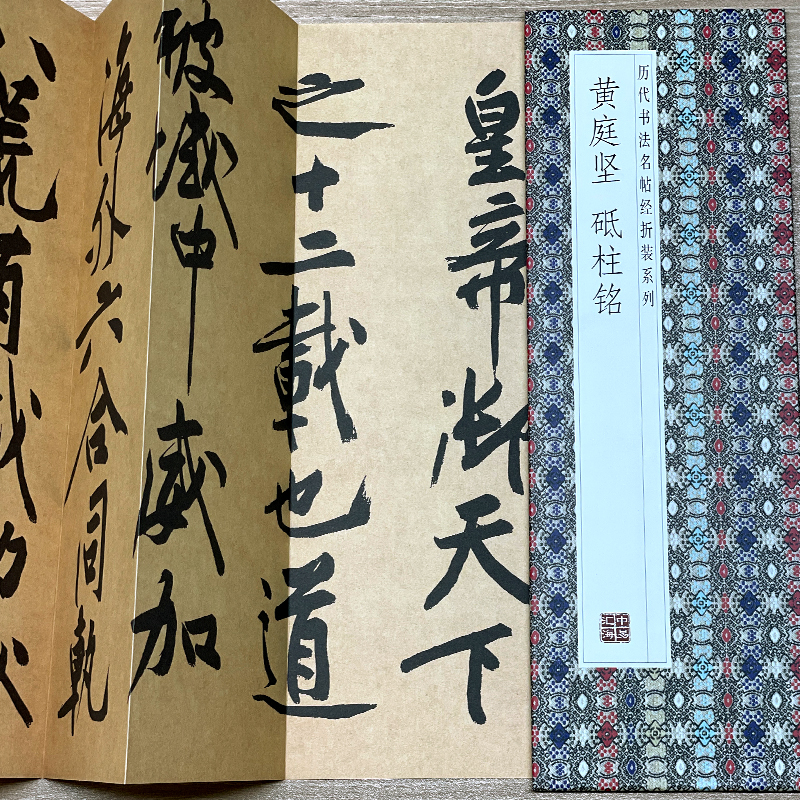 历代书法名帖经折装系列
黄庭坚 砥柱铭
皇帝御天下
之十二載也道
被域中威加
海外六合同軌
八荒有截功成